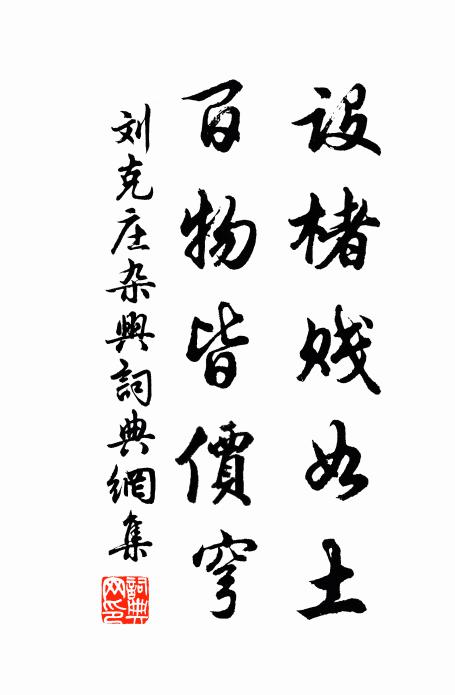 設楮賤如土
百物皆價穹
刘克庄杂興詞典網集
詞典网印